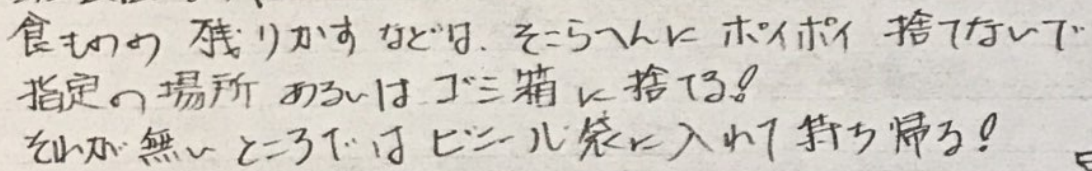 食もの々 残りかすなどは、そこらへんに ポイポイ 捨てないで
指定の場所 あるいは ゴミ箱に捨てる!
それが無いところでは ビニール袋に入れて持ち帰る!